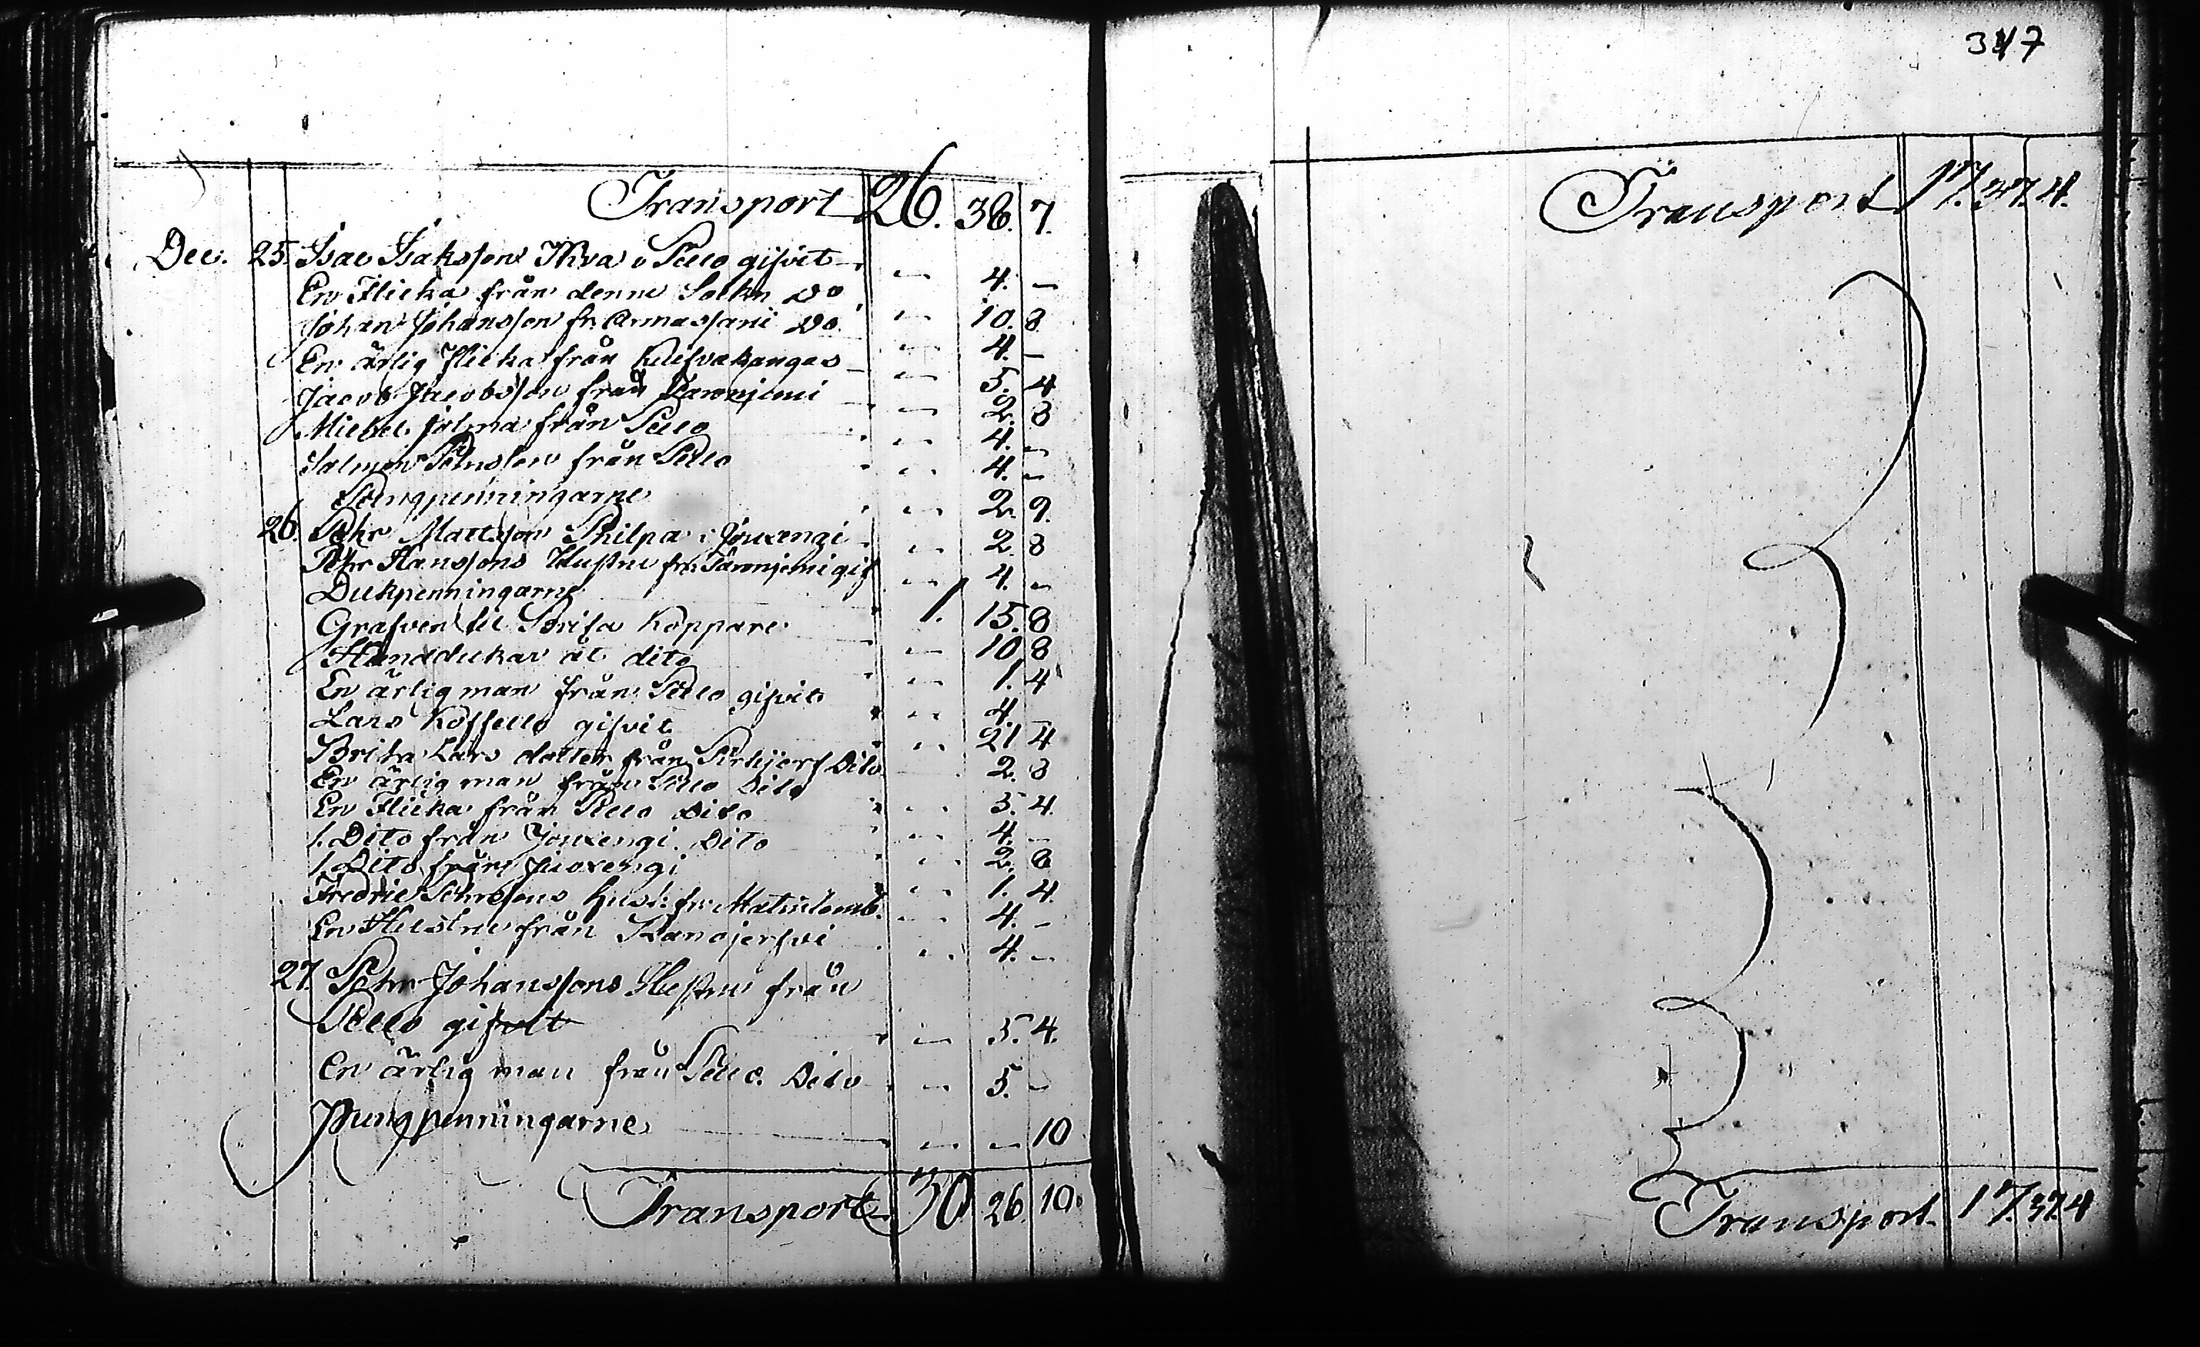 347
Transport 26. 38. 7.
Dec. 25. Isac Isaksson Thva i Pello gifvit — 4. —
En Flicka från denne Sokn do — 10. 8.
Johan Johansson fr. Armassari do. — 4. —
En ärlig Flicka från — 5. 4
Jacob Jacobsson från — 2. 8
Michel Jolma från Pello — 4. —
Salmon från Pello — 4. —
Pungpenningarne — 2. 9.
26. Pehr Mattsson Philpa i Jouxengi — 2. 8
Pehr Hanssons Hustru fr. gif — 4. —
Dukpenningarne 1. 15. 8
Grafven till Brita Koppare — 10 8
Handdukar åt dito — 1. 4
En ärlig man från Pello gifvit — 4. —
Lars gifvit — 21 4
Brita Lars dotter från Dito 2. 8
En ärlig man från Pello Dito
En Flicka från Pello Dito — 5. 4.
1. Dito från Jouxengi. Dito — 4. —
1. Dito från Juoxengi — 2. 8
Fredric Pehrssons Hust: fr. — 1. 4.
En Hustru från — 4. —
— 4. —
27. Pehr Johanssons Hustru från
Pello gifvit — 5. 4.
En ärlig man från Pello. Dito — 5. —
Pungpenningarne — — 10
Transport 30 26. 10.
Transport 17. 37. 4.
Transport 17. 37. 4